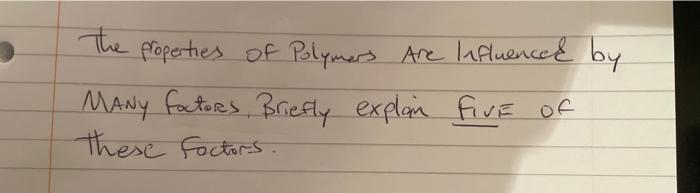 The properties of Polymers Are Influenced by
MANY factors, Briefly explain FIVE of
these factors.